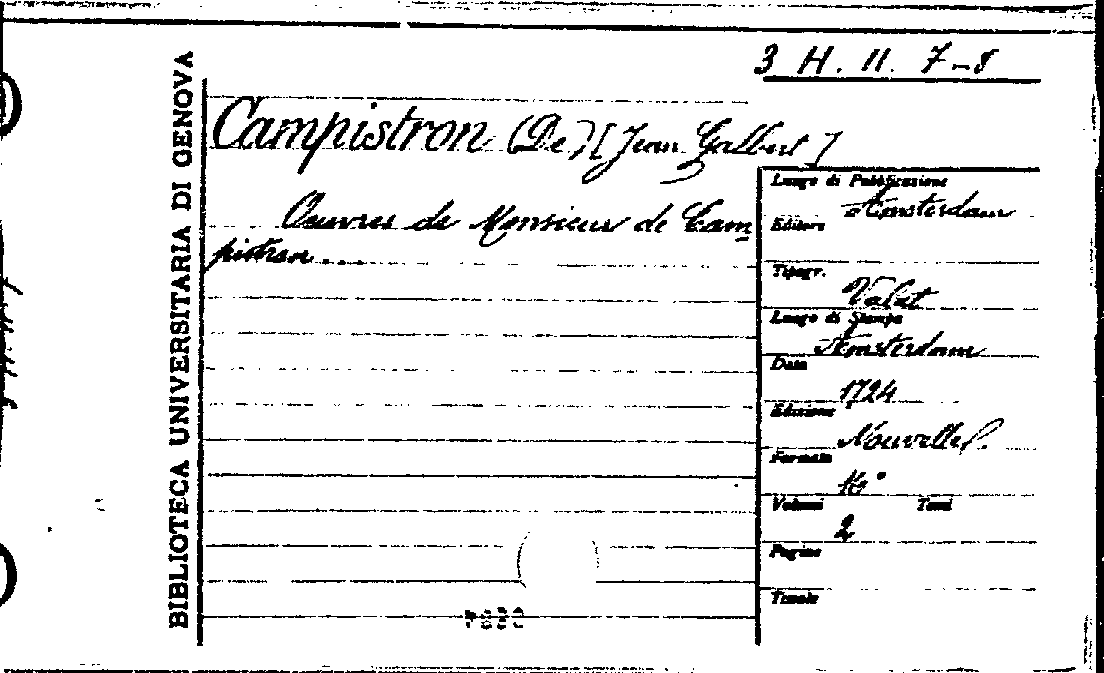 3 H. II. 7-8
BIBLIOTECA UNIVERSITARIA DI GENOVA
Campistron (De) [Jean Galbert]
Luogo di Pubblicazione
Amsterdam
Oeuvres de Monsieur de Cam-
pistron....
Editore
Tipogr.
Valat
Luogo di Stampa
Amsterdam
Data
1724
Edizione
Nouvelle
Formato
16°
Volumi Tomi
2
Pagine
Tavole